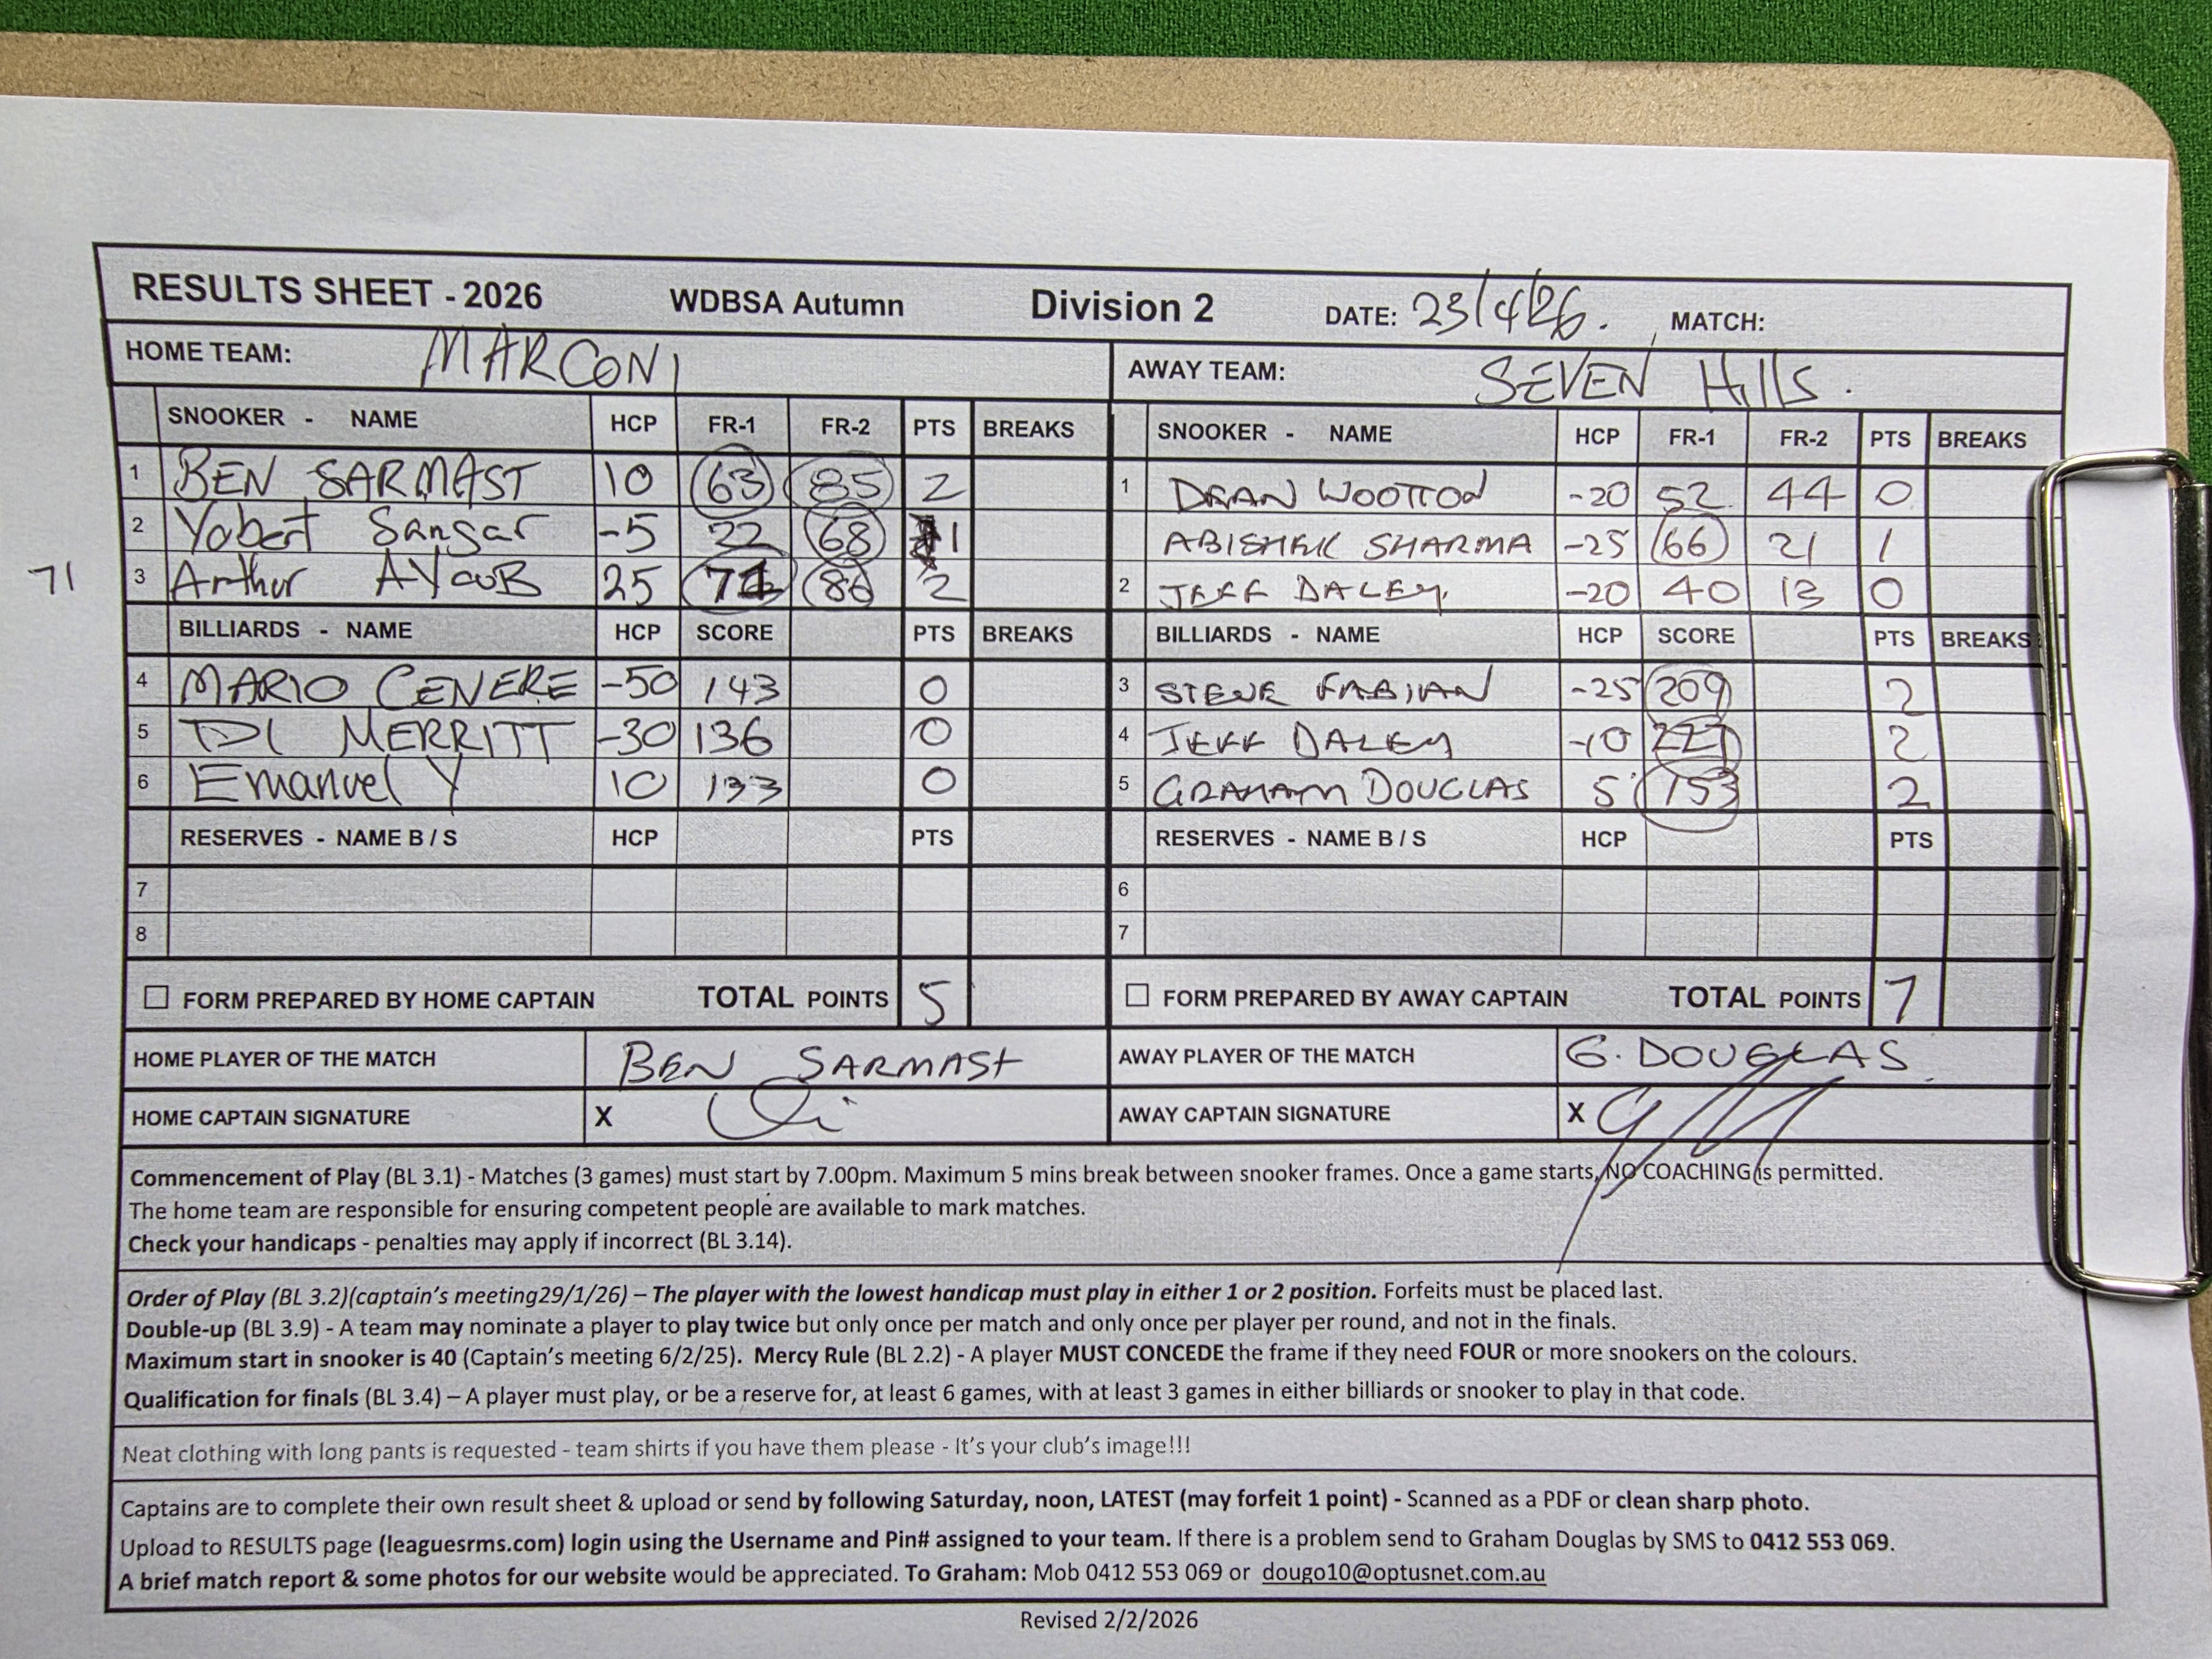 RESULTS SHEET - 2026 WDBSA Autumn Division 2 DATE: 23/4/26. MATCH:
HOME TEAM: MARCONI AWAY TEAM: SEVEN Hills.
SNOOKER - NAME HCP FR-1 FR-2 PTS BREAKS SNOOKER - NAME HCP FR-1 FR-2 PTS BREAKS
1 BEN SARMAST 10 63 85 2 1 DEAN WOOTTON -20 52 44 0
2 Yobert Sangar -5 22 68 1 ABISHEK SHARMA -25 66 21 1
71 3 Arthur AYOUB 25 71 86 2 2 JEFF DALEY. -20 40 13 0
BILLIARDS - NAME HCP SCORE PTS BREAKS BILLIARDS - NAME HCP SCORE PTS BREAKS
4 MARIO CENERE -50 143 0 3 STEVE FABIAN -25 209 2
5 DI MERRITT -30 136 0 4 JEFF DALEY -10 227 2
6 Emanuel Y 10 133 0 5 GRAHAM DOUGLAS 5 153 2
RESERVES - NAME B / S HCP PTS RESERVES - NAME B / S HCP PTS
7 6
8 7
FORM PREPARED BY HOME CAPTAIN TOTAL POINTS 5 FORM PREPARED BY AWAY CAPTAIN TOTAL POINTS 7
HOME PLAYER OF THE MATCH BEN SARMAST AWAY PLAYER OF THE MATCH G. DOUGLAS
HOME CAPTAIN SIGNATURE X AWAY CAPTAIN SIGNATURE X
Commencement of Play (BL 3.1) - Matches (3 games) must start by 7.00pm. Maximum 5 mins break between snooker frames. Once a game starts, NO COACHING is permitted.
The home team are responsible for ensuring competent people are available to mark matches.
Check your handicaps - penalties may apply if incorrect (BL 3.14).
Order of Play (BL 3.2)(captain's meeting29/1/26) – The player with the lowest handicap must play in either 1 or 2 position. Forfeits must be placed last.
Double-up (BL 3.9) - A team may nominate a player to play twice but only once per match and only once per player per round, and not in the finals.
Maximum start in snooker is 40 (Captain's meeting 6/2/25). Mercy Rule (BL 2.2) - A player MUST CONCEDE the frame if they need FOUR or more snookers on the colours.
Qualification for finals (BL 3.4) – A player must play, or be a reserve for, at least 6 games, with at least 3 games in either billiards or snooker to play in that code.
Neat clothing with long pants is requested - team shirts if you have them please - It's your club's image!!!
Captains are to complete their own result sheet & upload or send by following Saturday, noon, LATEST (may forfeit 1 point) - Scanned as a PDF or clean sharp photo.
Upload to RESULTS page (leaguesrms.com) login using the Username and Pin# assigned to your team. If there is a problem send to Graham Douglas by SMS to 0412 553 069.
A brief match report & some photos for our website would be appreciated. To Graham: Mob 0412 553 069 or dougo10@optusnet.com.au
Revised 2/2/2026